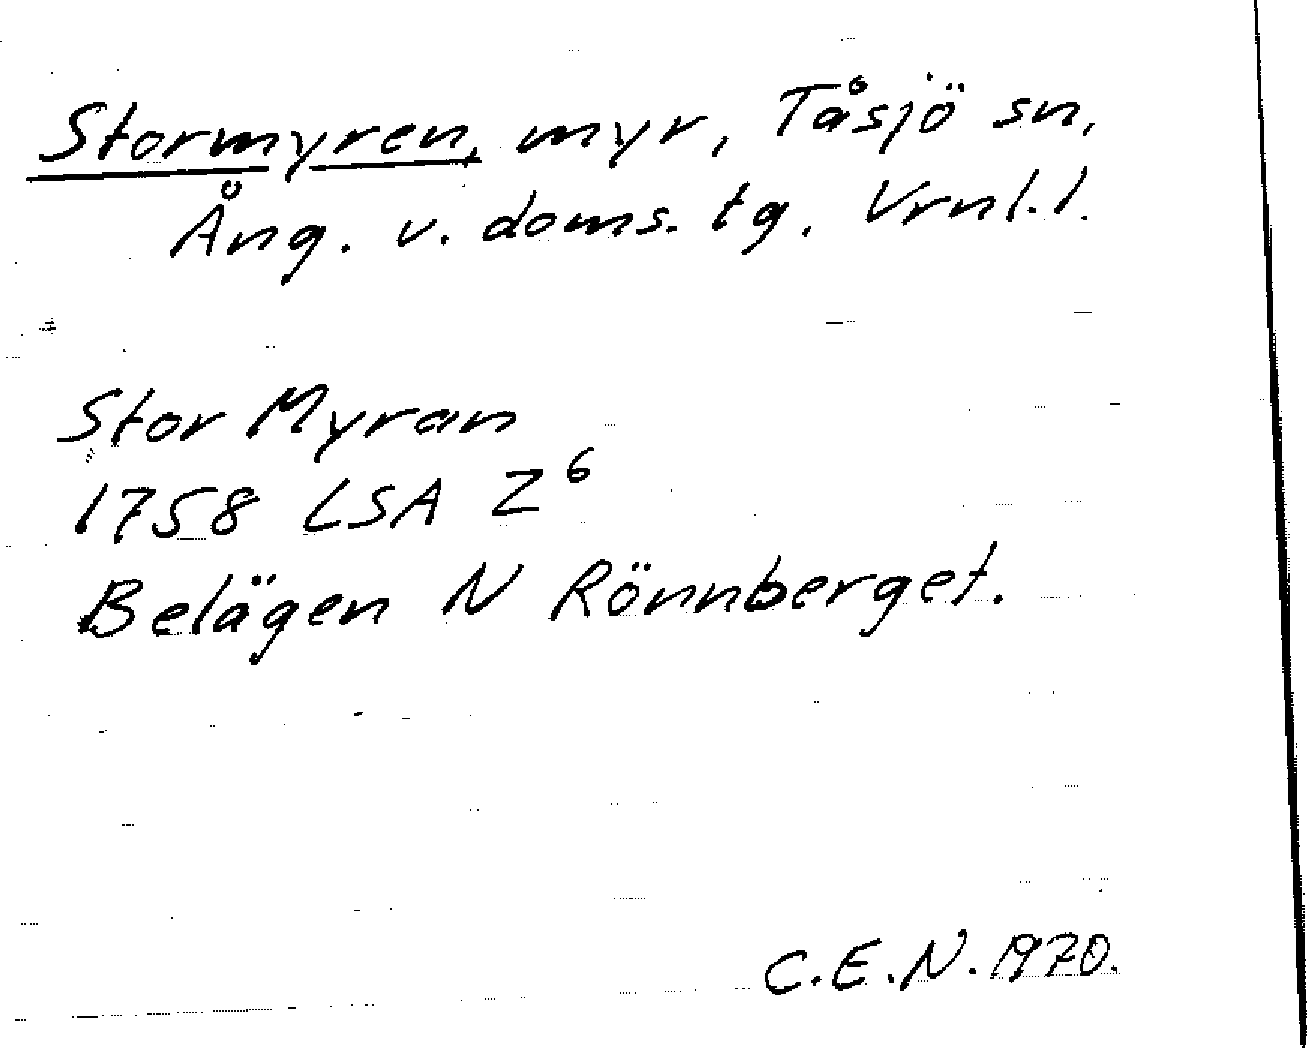 Stormyren, myr, Tåsjö sn,
Ång. v. doms. tg. Vrnl.l.
Stor Myran
1758 LSA Z⁶
Belägen N Rönnberget.
C.E.N. 1970.